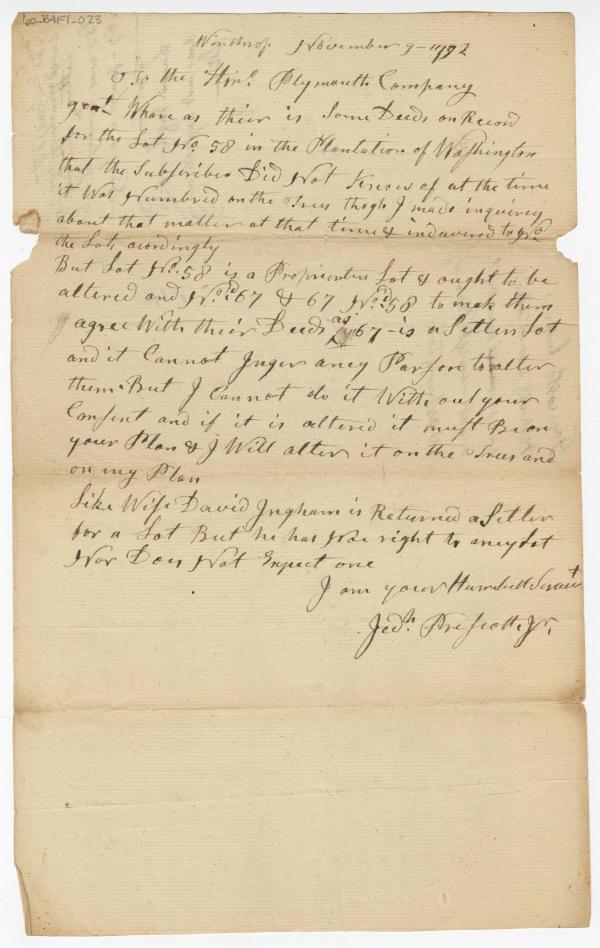 60_B4F1_023
Winthrop November 9 - 1792
To the Honl. Plymouth Company
gent. Whare as thier is Some Deeds on Record
for the Lot No. 58 in the Plantation of Washington
that the Subscriber Did Not Know of at the time
it Was Numbred on the Trees thogh I made inquirey
about that matter at that time & indavered to No.
the Lots acordingly
But Lot No. 58 is a Proprieters Lot & ought to be
altered and No.d 67 & 67 No.d 58 to mak them
agree With their Deeds as 67 - is a Setlers Lot
and it Cannot Inger aney Parson to alter
them. But I Cannot do it With out your
Consent and if it is altered it must Be on
your Plan & I Will alter it on the Trees and
on my Plan
Like Wise David Ingham is Returned a Setler
for a Lot But he has Noe right to aney Lot
Nor Does Not Expect one
I am your Humbell Servant
Jedh. Prescott, Jr.